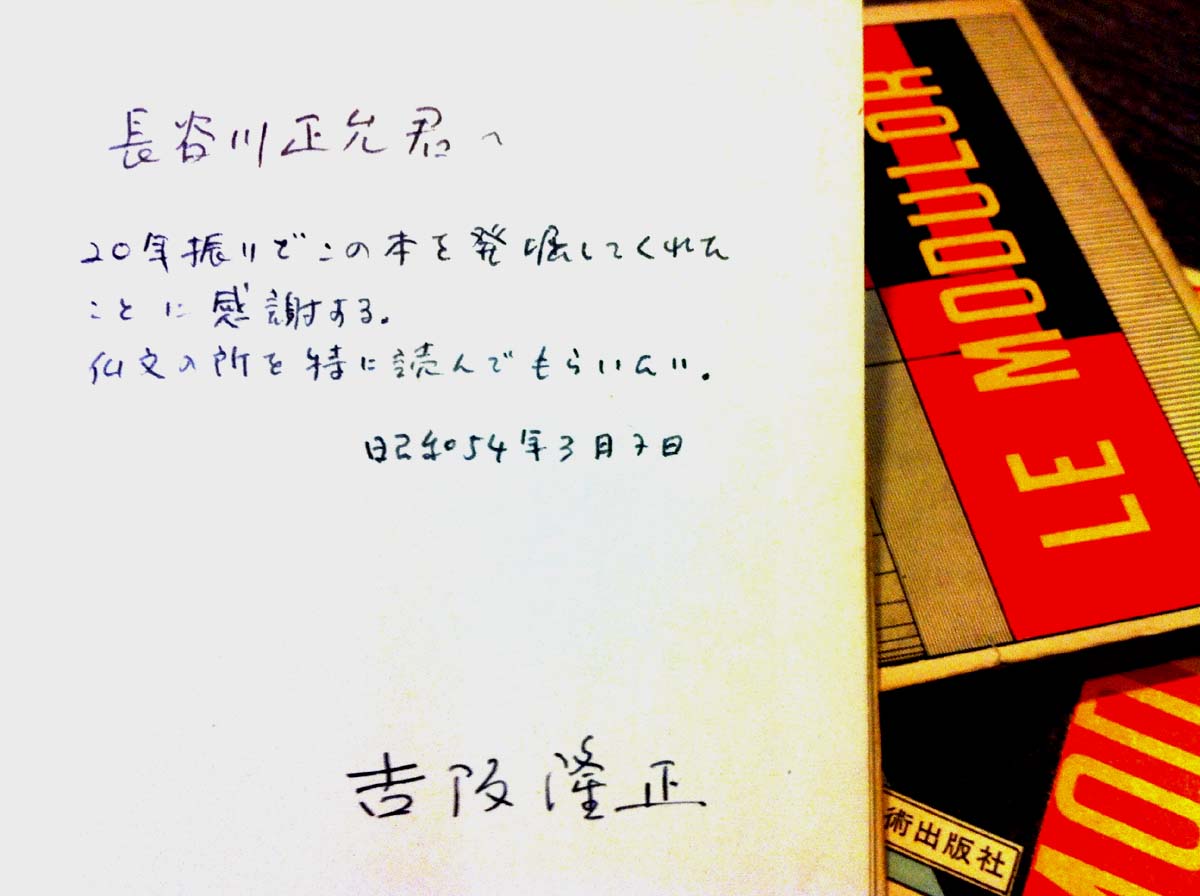 長谷川正允君へ
20年振りでこの本を発掘してくれた
ことに感謝する。
仏文の所を特に読んでもらいたい。
昭和54年3月7日
吉阪隆正
LE MODULOR
術出版社